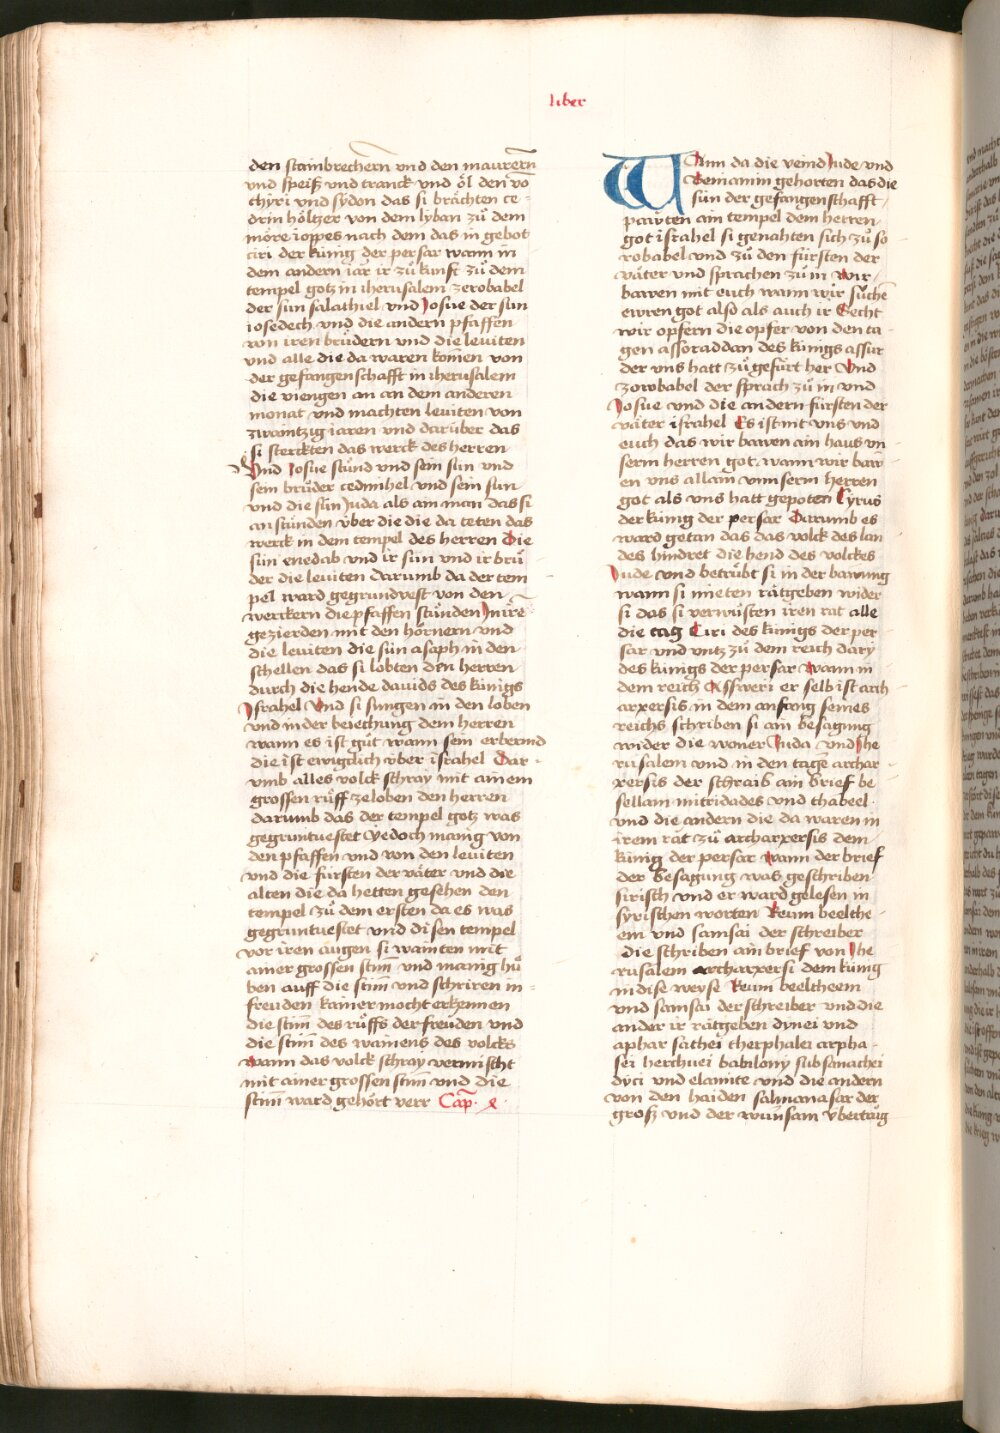 liber
den stainbrechern vnd den maurern̄
vnd speiß vnd tranck vnd öl den vō
thyri vnd sydon das si brächten ce-
drin höltzer von dem lyban zů dem
möre ioppes nach dem das in gebot
ciri der künig der persar wann in
dem andern iar ir zůkunft zů dem
tempel gotz in iherusalem zerobabel
der sun salathiel vnd Josue der sun
iosedech vnd die andern pfaffen
von iren brůdern vnd die leuiten
vnd alle die da waren komen von
der gefangenschafft in iherusalem
die viengen an an dem anderen
monat vnd machten leuiten von
zwaintzig iaren vnd darüber das
si sterckten das werck des herren
Vnd Josue stůnd vnd sein sun vnd
sein brůder cedmihel vnd sein sun
vnd die sün Juda als ain man das si
an stůnden über die die da teten das
werck in dem tempel des herren Die
sün enedab vnd ir sün vnd ir brů
der die leuiten darumb da der tem
pel ward gegrundvest von den
werckern die pfaffen stůnden In ire
gezierden mit den hörnern vnd
die leuiten die sün asaph in den
schellen das si lobten den herren
durch die hende dauids des künigs
Israhel Vnd si sungen in den loben
vnd in der beiechung dem herren
wann es ist gůt wann sein erbermd
die ist ewigclich über israhel Dar-
umb alles volck schray mit ainem
grossen růff ze loben den herren
darumb das der tempel gotz was
gegruntuestet Yedoch manig von
den pfaffen vnd von den leuiten
vnd die fürsten der väter vnd die
alten die da hetten gesehen den
tempel zů dem ersten da es was
gegruntuestet vnd disen tempel
vor iren augen si wainten mit
ainer grossen stim̄ vnd manig hů
ben auff die stim̄ vnd schriren in
freuden kainer mocht erkennen
die stim̄ des růffs der freuden vnd
die stim̄ des wainens des volcks
Wann das volck schray vermischt
mit ainer grossen stim̄ vnd die
stim̄ ward gehört verr Cap.
WAnn da die veind Jude vnd
Beniamin gehorten das die
sün der gefangenschafft
pawten ain tempel dem herren
got israhel si genahten sich zů so
robabel vnd zů den fürsten der
väter vnd sprachen zů in Wir
bawen mit euch wann wir sůchē
ewren got also als auch ir Secht
wir opfern die opfer von den ta
gen assoraddan des künigs assur
der vns hatt zů gefürt her Vnd
zorobabel der sprach zů in vnd
Josue vnd die andern fürsten der
väter israhel Es ist nit vns vnd
euch das wir bawen ain haus vn
serm herren got wann wir baw
en vns allain vnnserm herren
got als vns hatt gepoten Cyrus
der künig der persar Darumb es
ward getan das das volck des lan
des hindret die hend des volckes
Jude vnd betrübt si in der bawung
wann si mieten rätgeben wider
si das si verwůsten iren rat alle
die tag Ciri des künigs der per
sar vnd vntz zů dem reich dary
des künigs der persar Wann in
dem reich Assweri er selb ist arth
arxersis in dem anfang seines
reichs schriben si ain besagung
wider die woner Juda vnd Jhe
rusalem vnd in den tagē archar
xersis der schraib ain brief be
sellam mitridades vnd thabeel
vnd die andern die da waren in
irem rat zů archarxersis dem
künig der persar Wann der brief
der besagung was geschriben
sirisch vnd er ward gelesen in
syrischen worten Reum beelthe
em vnd samsai der schreiber
die schriben ain brief von Jhe
rusalem archarxersi dem künig
in dise weyse Reum beeltheem
vnd samsai der schreiber vnd die
ander ir rätgeben dynei vnd
aphar sathei therphalei arpha
sei herchuei babilony subsanachei
dyci vnd elamite vnd die andern
von den haiden salmanasar der
groß vnd der wunsam übertrůg